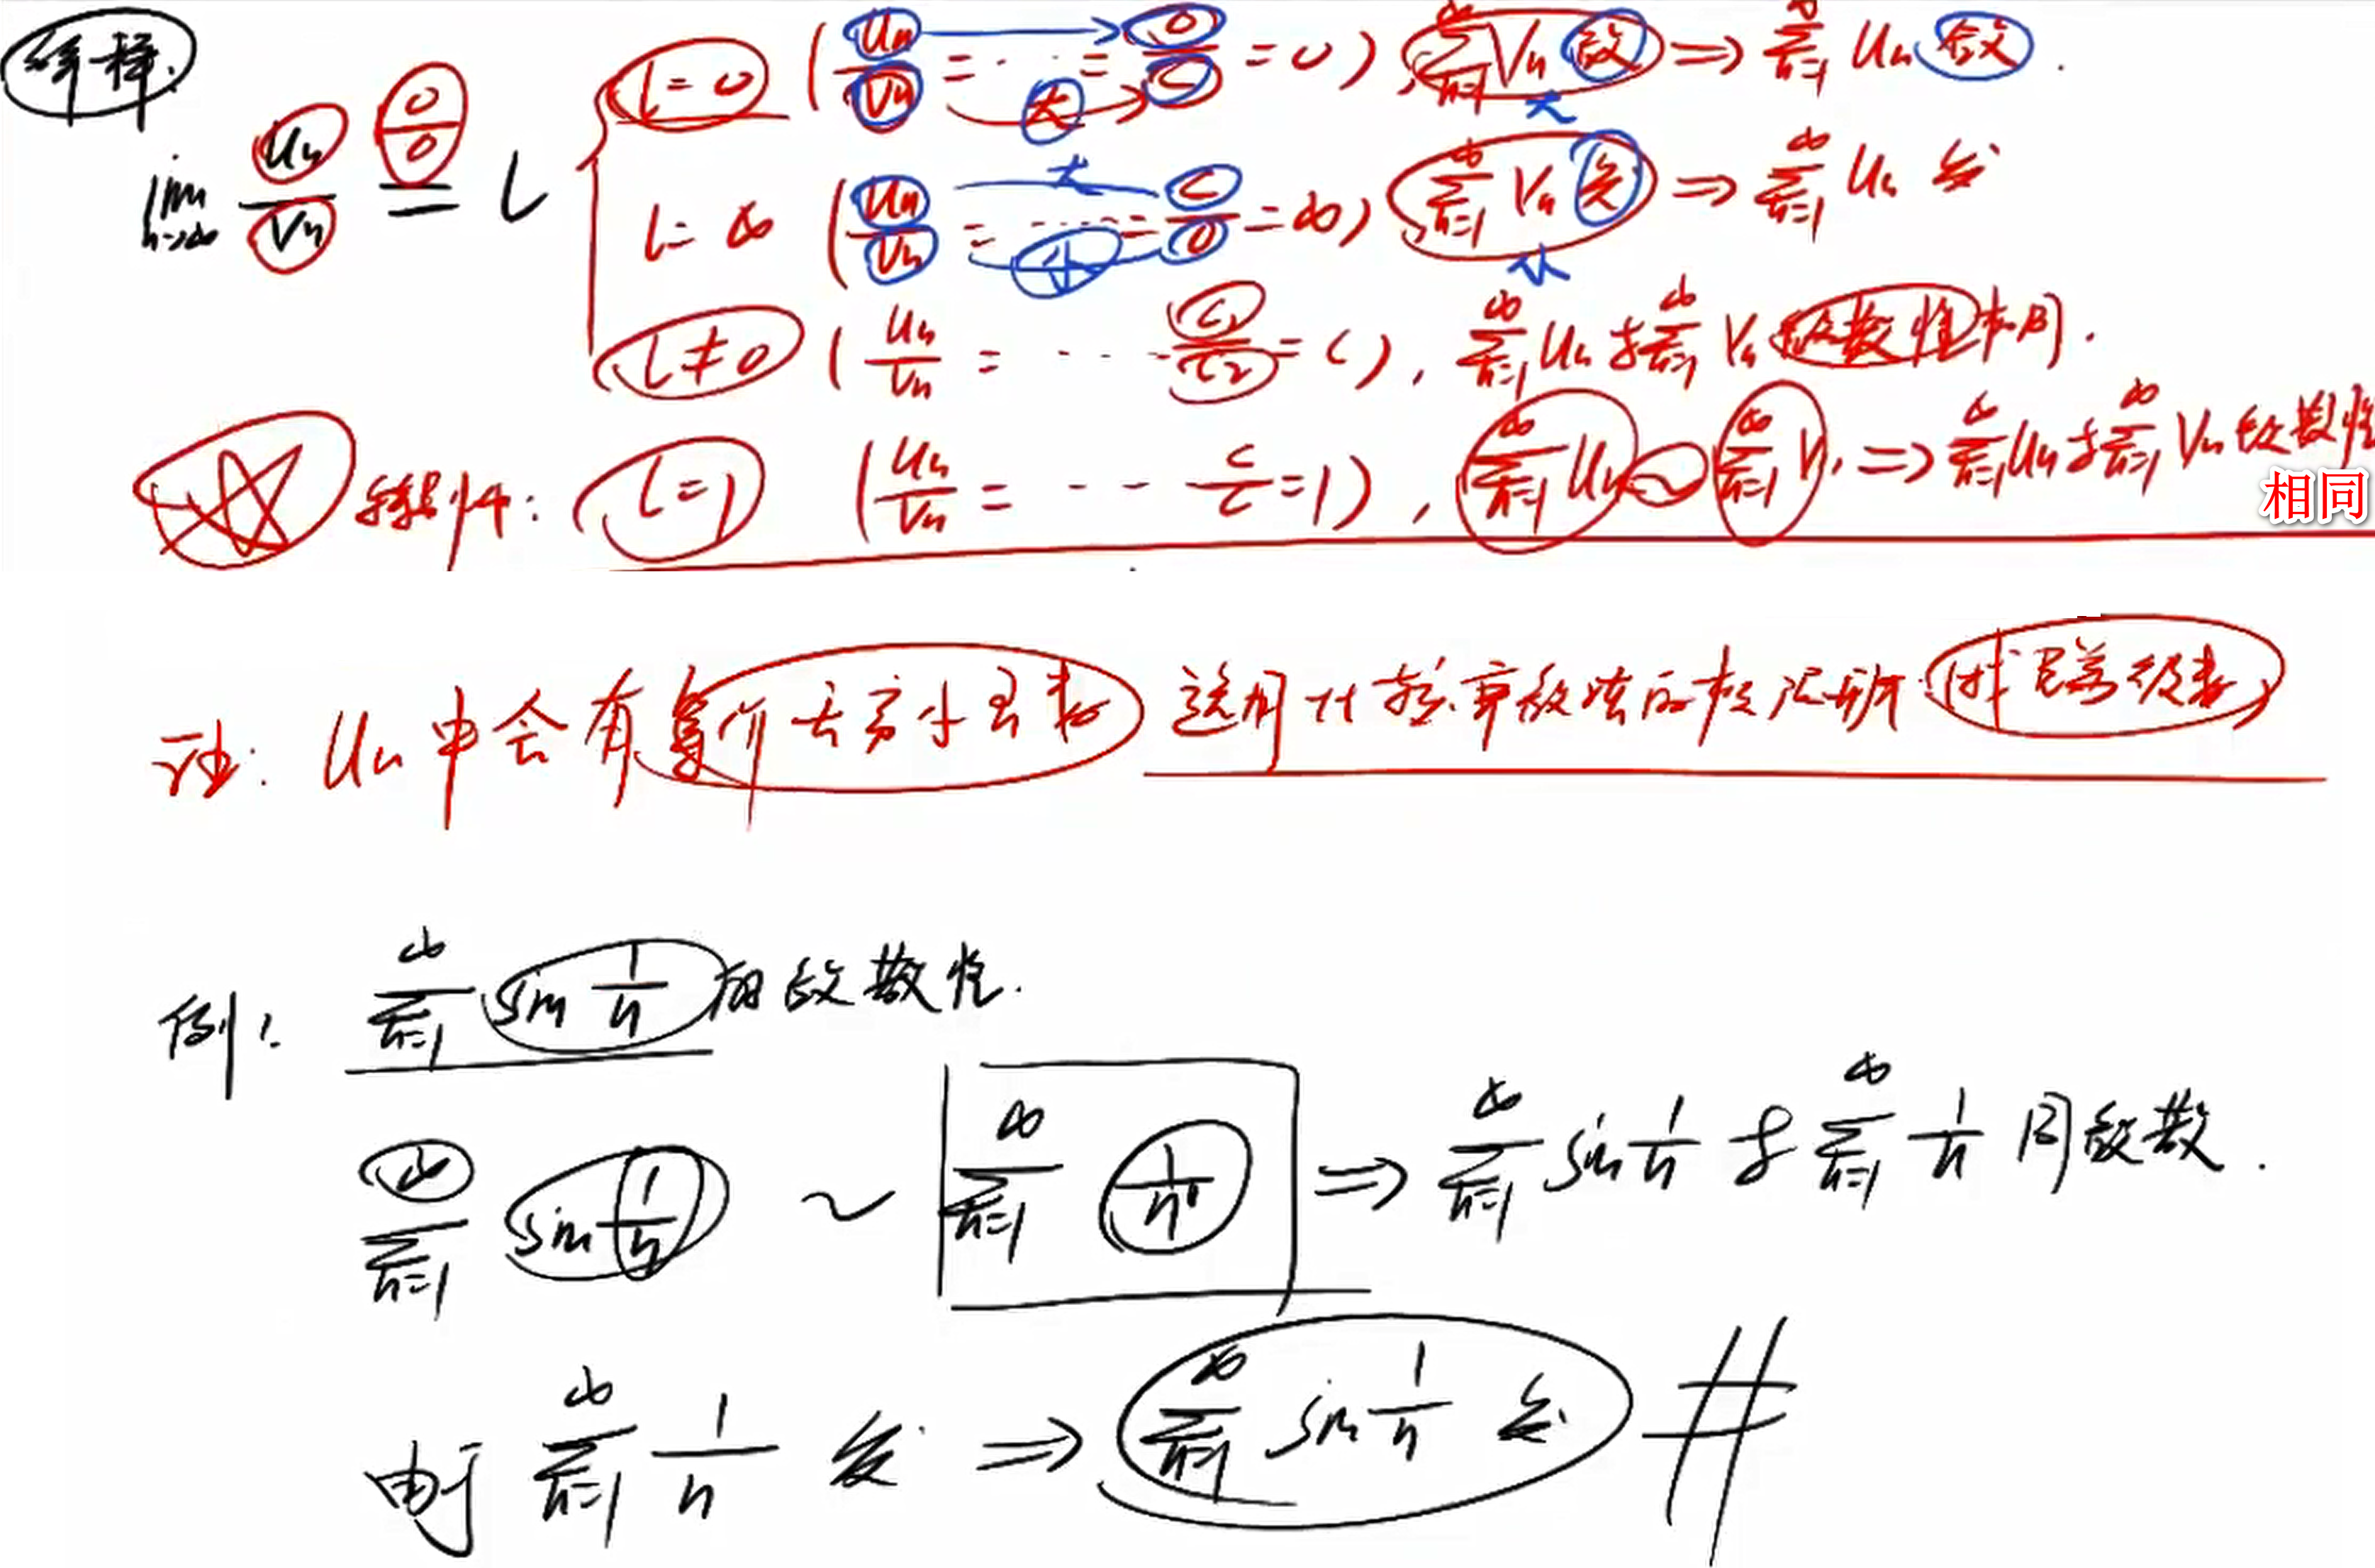 lim n→∞ Un/Vn = 0/0 = l
l=0 (Un/Vn = ··· = 0/C = 0), ∑n=1∞ Vn 敛 ⇒ ∑n=1∞ Un 敛.
大 大
l=∞ (Un/Vn = ····· = C/0 = ∞), ∑n=1∞ Vn 发 ⇒ ∑n=1∞ Un 发
大 小 小
l≠0 (Un/Vn = ··· C1/C2 = C), ∑n=1∞ Un 与 ∑n=1∞ Vn 敛散性相同.
特别地: l=1 (Un/Vn = ··· C/C = 1), ∑n=1∞ Un ~ ∑n=1∞ Vn ⇒ ∑n=1∞ Un 与 ∑n=1∞ Vn 敛散性
相同
注: Un 中会有等价无穷小因素 选用比较审敛法的极限形式 (找 P级数)
例: ∑n=1∞ sin 1/n 的敛散性.
∑n=1∞ sin 1/n ~ ∑n=1∞ 1/n¹ ⇒ ∑n=1∞ sin 1/n 与 ∑n=1∞ 1/n 同敛散.
由于 ∑n=1∞ 1/n 发 ⇒ ∑n=1∞ sin 1/n 发. #